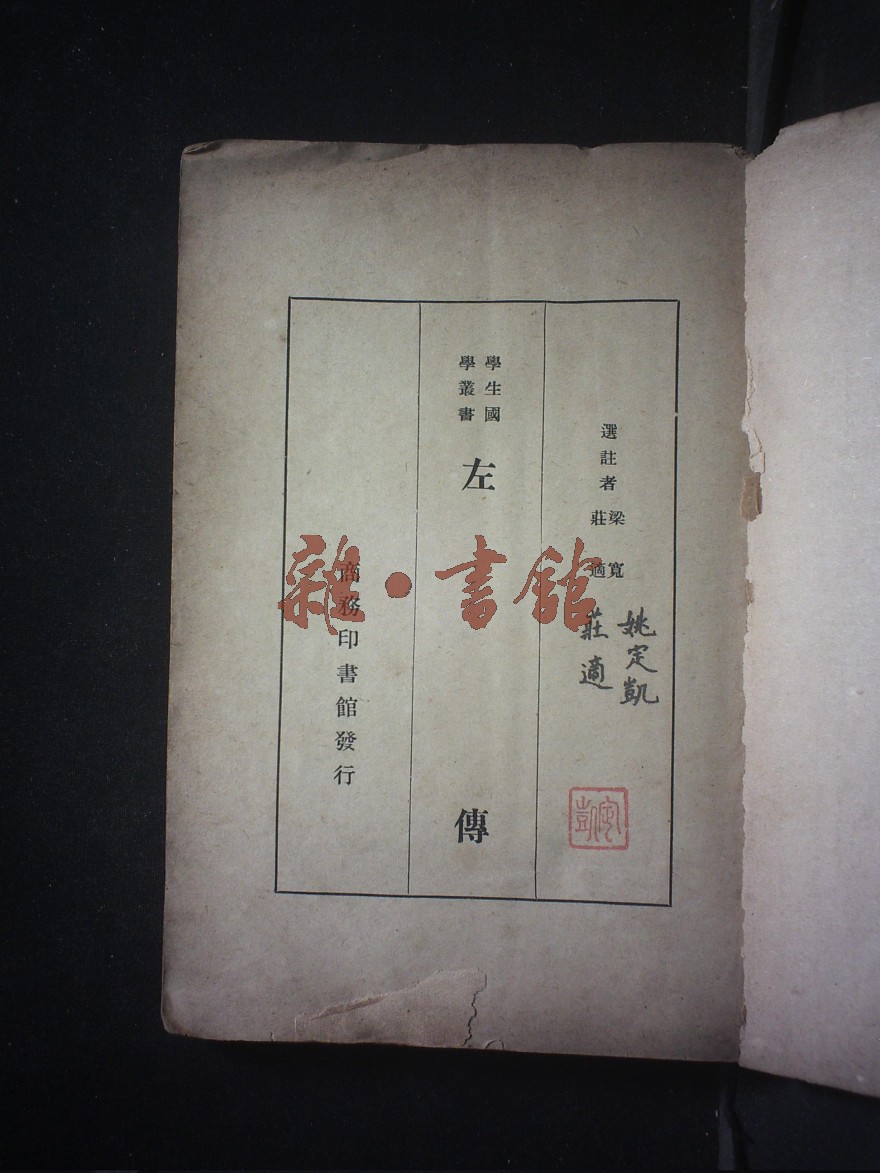 選註者
梁寬
莊適
姚定凱
莊適
定凱
學生國
學叢書
左傳
商務印書館發行
雜·書館